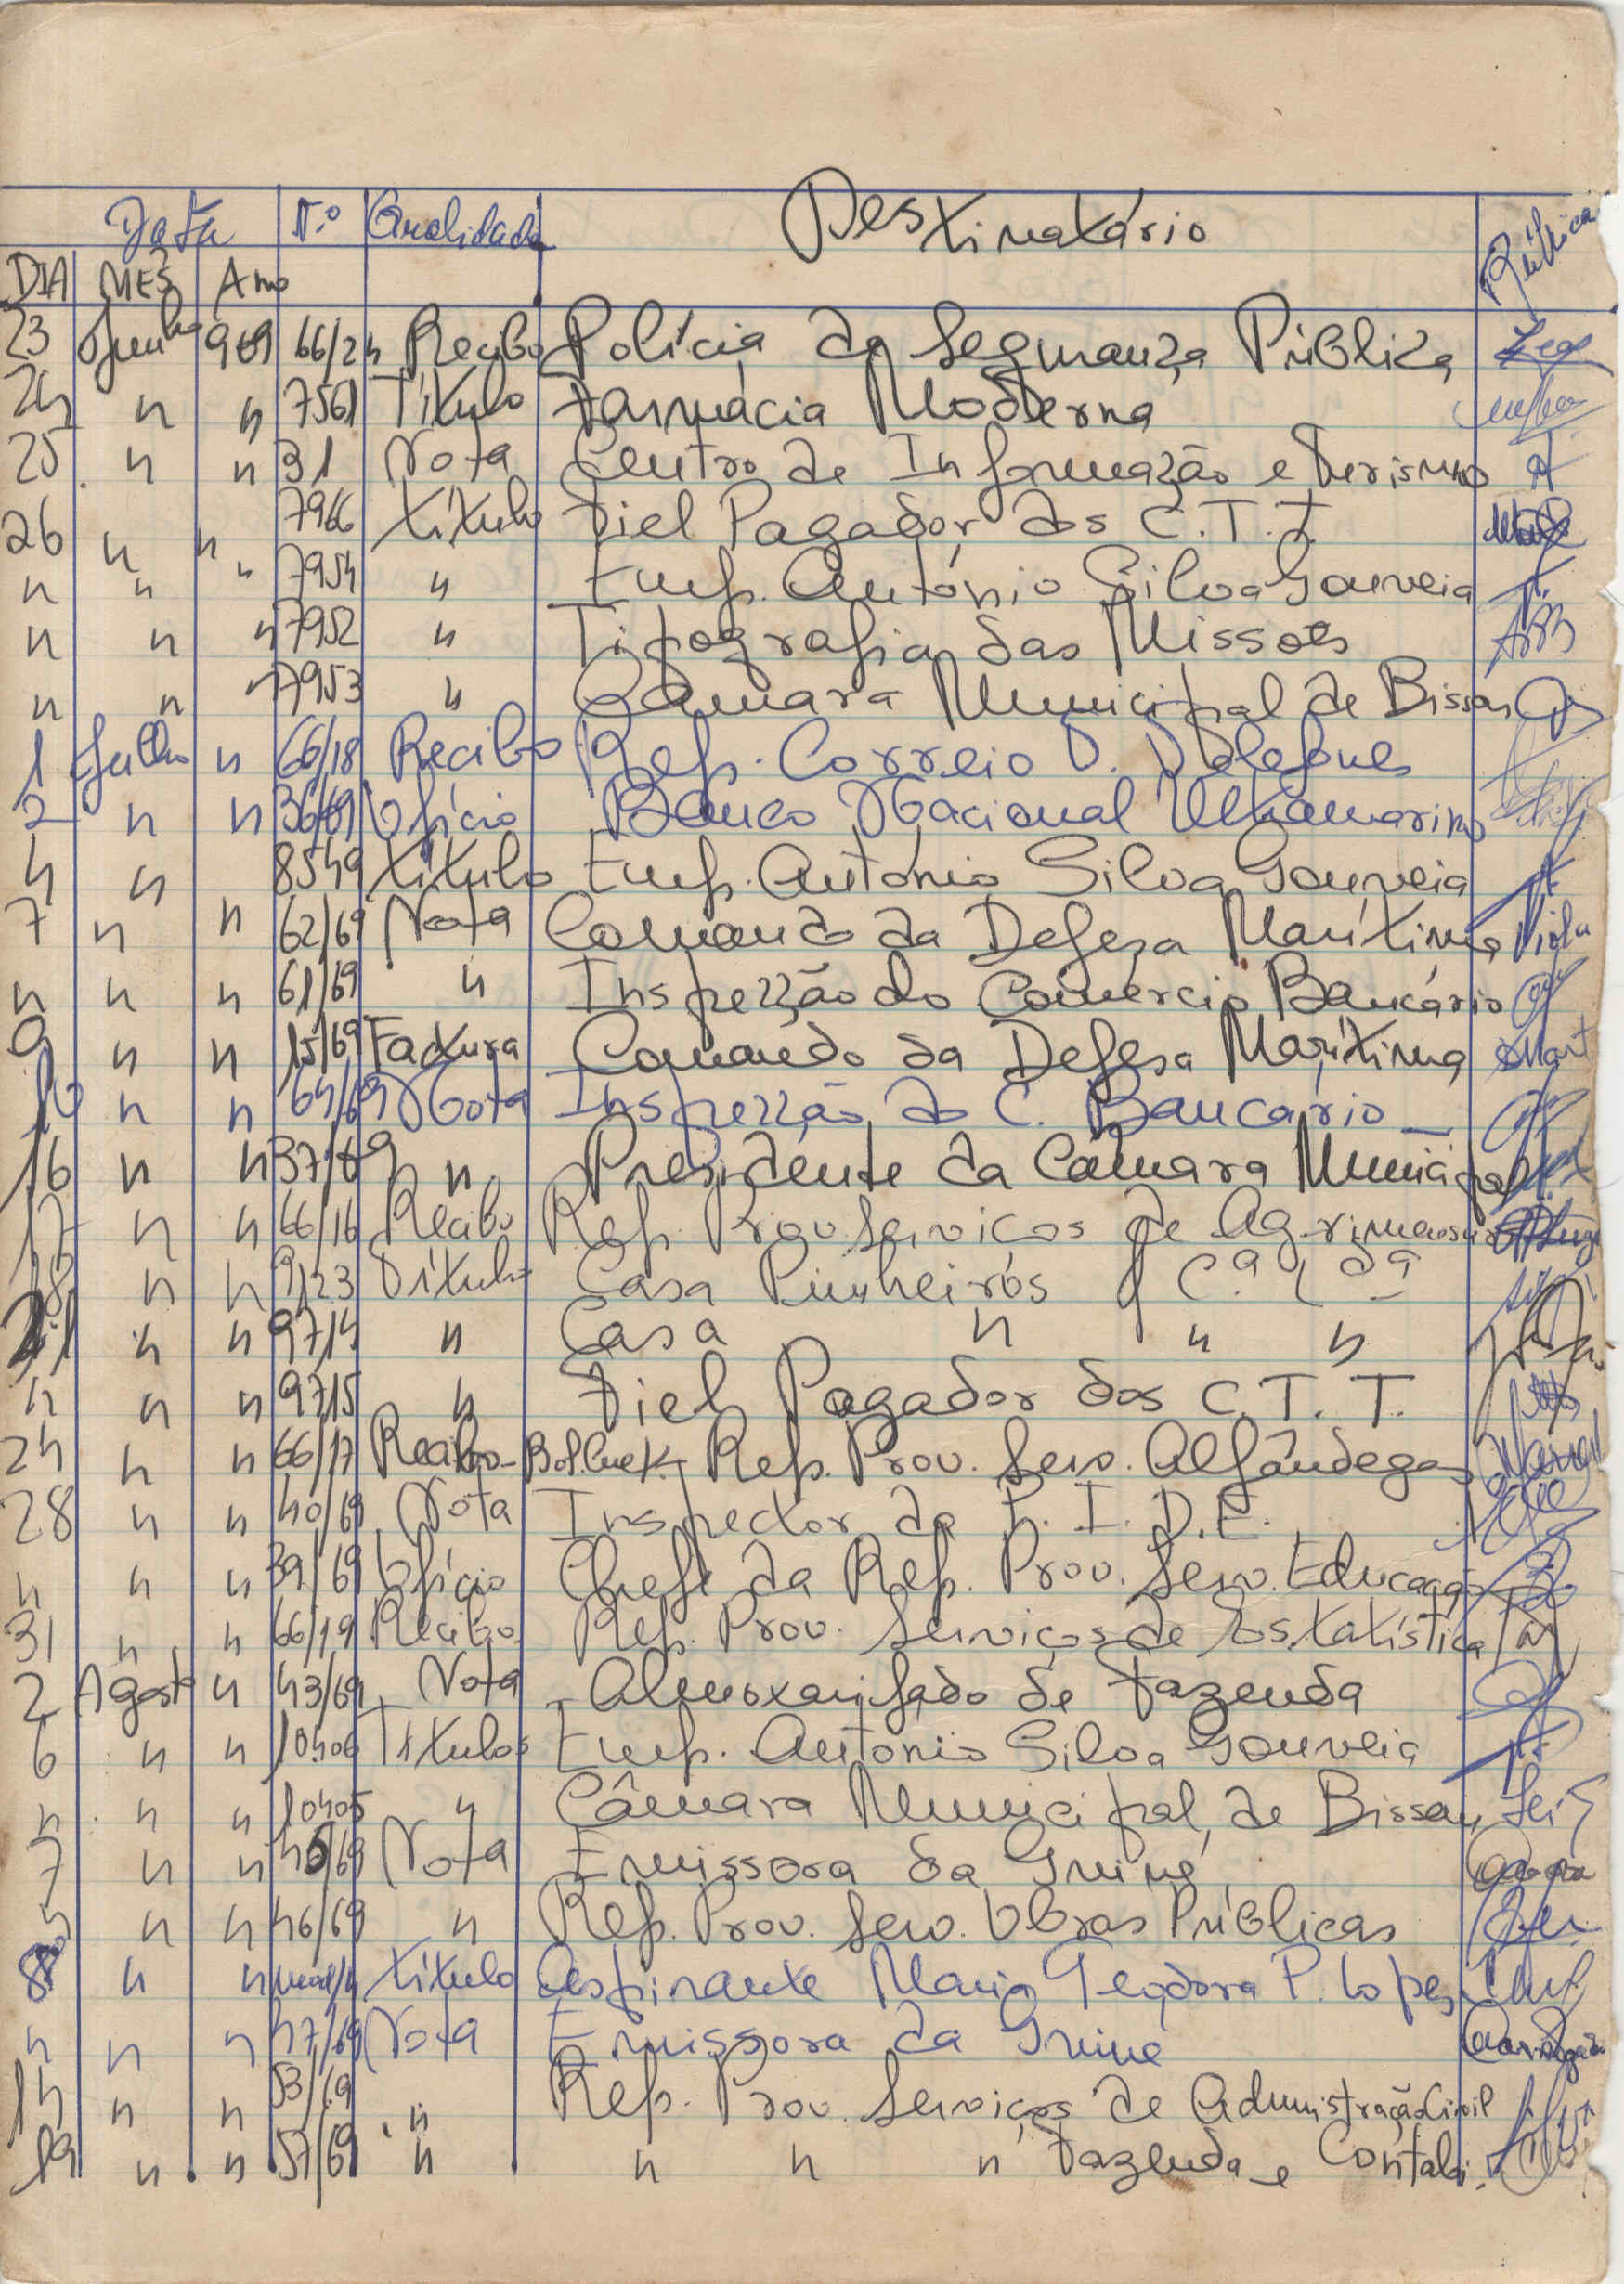 Data N.º Qualidade Destinatário Rúbrica
DIA MÊS Ano
23 Junho 969 66/24 Recibo Polícia de Segurança Pública
24 " " 7561 Título Farmácia Moderna
25 " " 31 Nota Centro de Informação e Turismo
26 " " 7966 Título Fiel Pagador dos C.T.T.
" " " 7954 " Emp. António Silva Gouveia
" " " 7952 " Tipografia das Missões
" " " 7953 " Câmara Municipal de Bissau
1 Julho " 66/18 Recibo Rep. Correio T. Telefones
2 " " 36/69 Ofício Banco Nacional Ultramarino
4 " 8549 Título Emp. António Silva Gouveia
7 " " 62/69 Nota Comando da Defesa Marítima
" " " 61/69 " Inspeção do Comércio Bancário
9 " " 15/69 Factura Comando da Defesa Marítima
10 " " 64/69 Nota Inspeção do C. Bancário
16 " " 37/69 " Presidente da Câmara Municipal
17 " " 66/16 Recibo Rep. Prov Serviços de Agrimensura
18 " " 9123 Título Casa Pinheiros & C.ª L.dª
21 " " 9714 " Casa " " "
" " " 9715 " Fiel Pagador dos C.T.T.
24 " " 66/17 Recibo Rep. Prov. Serv. Alfândegas
28 " " 40/69 Nota Inspector da P.I.D.E.
" " " 39/69 Ofício Chefe da Rep. Prov. Serv. Educação
31 " " 66/19 Recibo Rep. Prov. Serviços de Estatística
2 Agosto " 43/69 Nota Almoxarifado de Fazenda
6 " " 10406 Títulos Emp. António Silva Gouveia
" " " 10405 " Câmara Municipal de Bissau
7 " " 45/69 Nota Emissora da Guiné
" " " 46/69 " Rep. Prov. Serv. Obras Públicas
8 " " Título Aspirante Maria Teodora P. Lopes
" " " 47/69 Nota Emissora da Guiné
14 " " 53/69 " Rep. Prov. Serviços de Administração Civil
19 " " 57/69 " " " " Fazenda e Contabi.